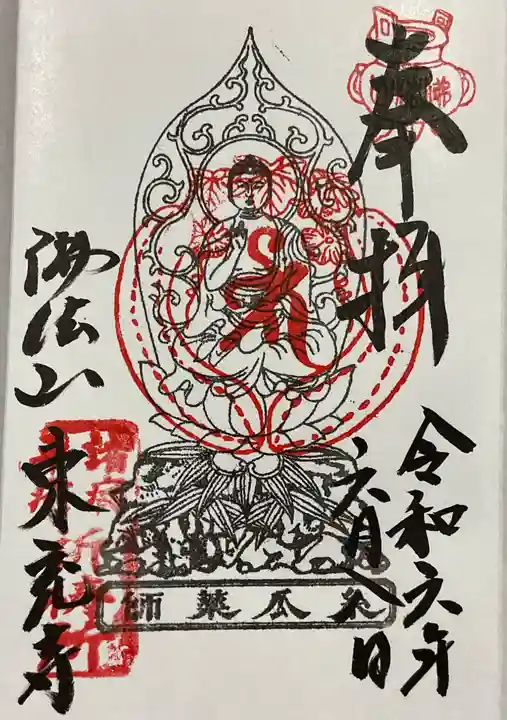 奉拝
令和六年
六月八日
糸瓜薬師
佛法山
東充寺